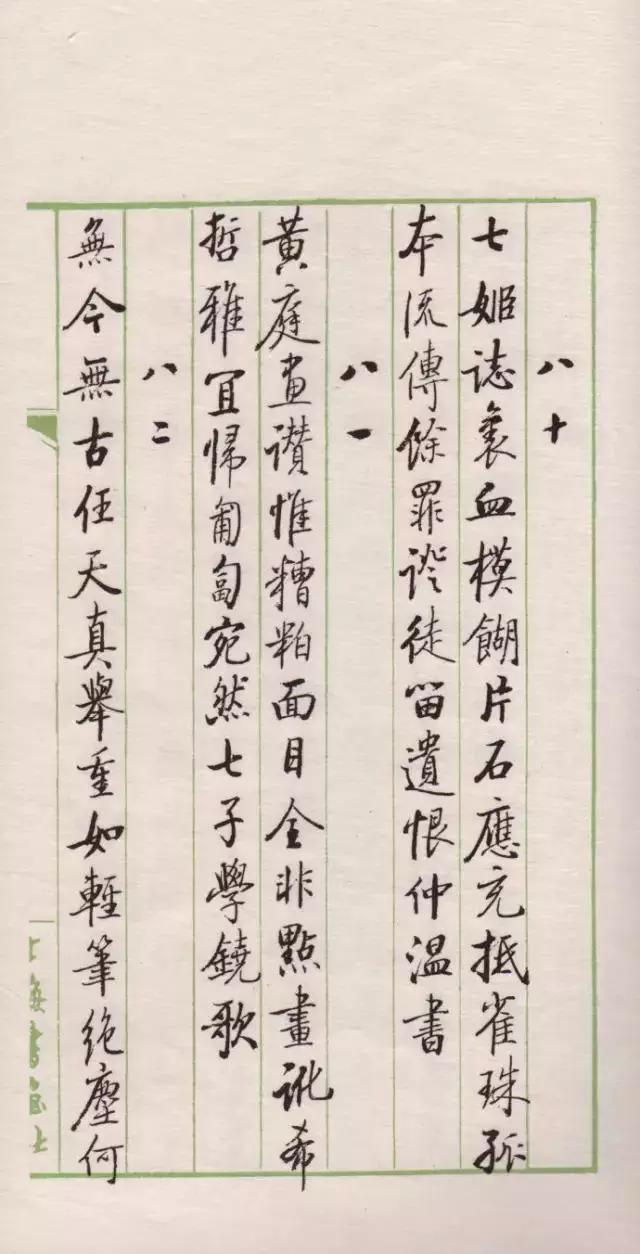 八十
七姬誌裏血模餬片石應充抵雀珠孤
本流傳餘罪證徒留遺恨仲温書
八一
黄庭畫讃惟糟粕面目全非點畫訛希
哲雅宜歸匍匐宛然七子學鐃歌
八二
無今無古任天真舉重如輕筆絶塵何